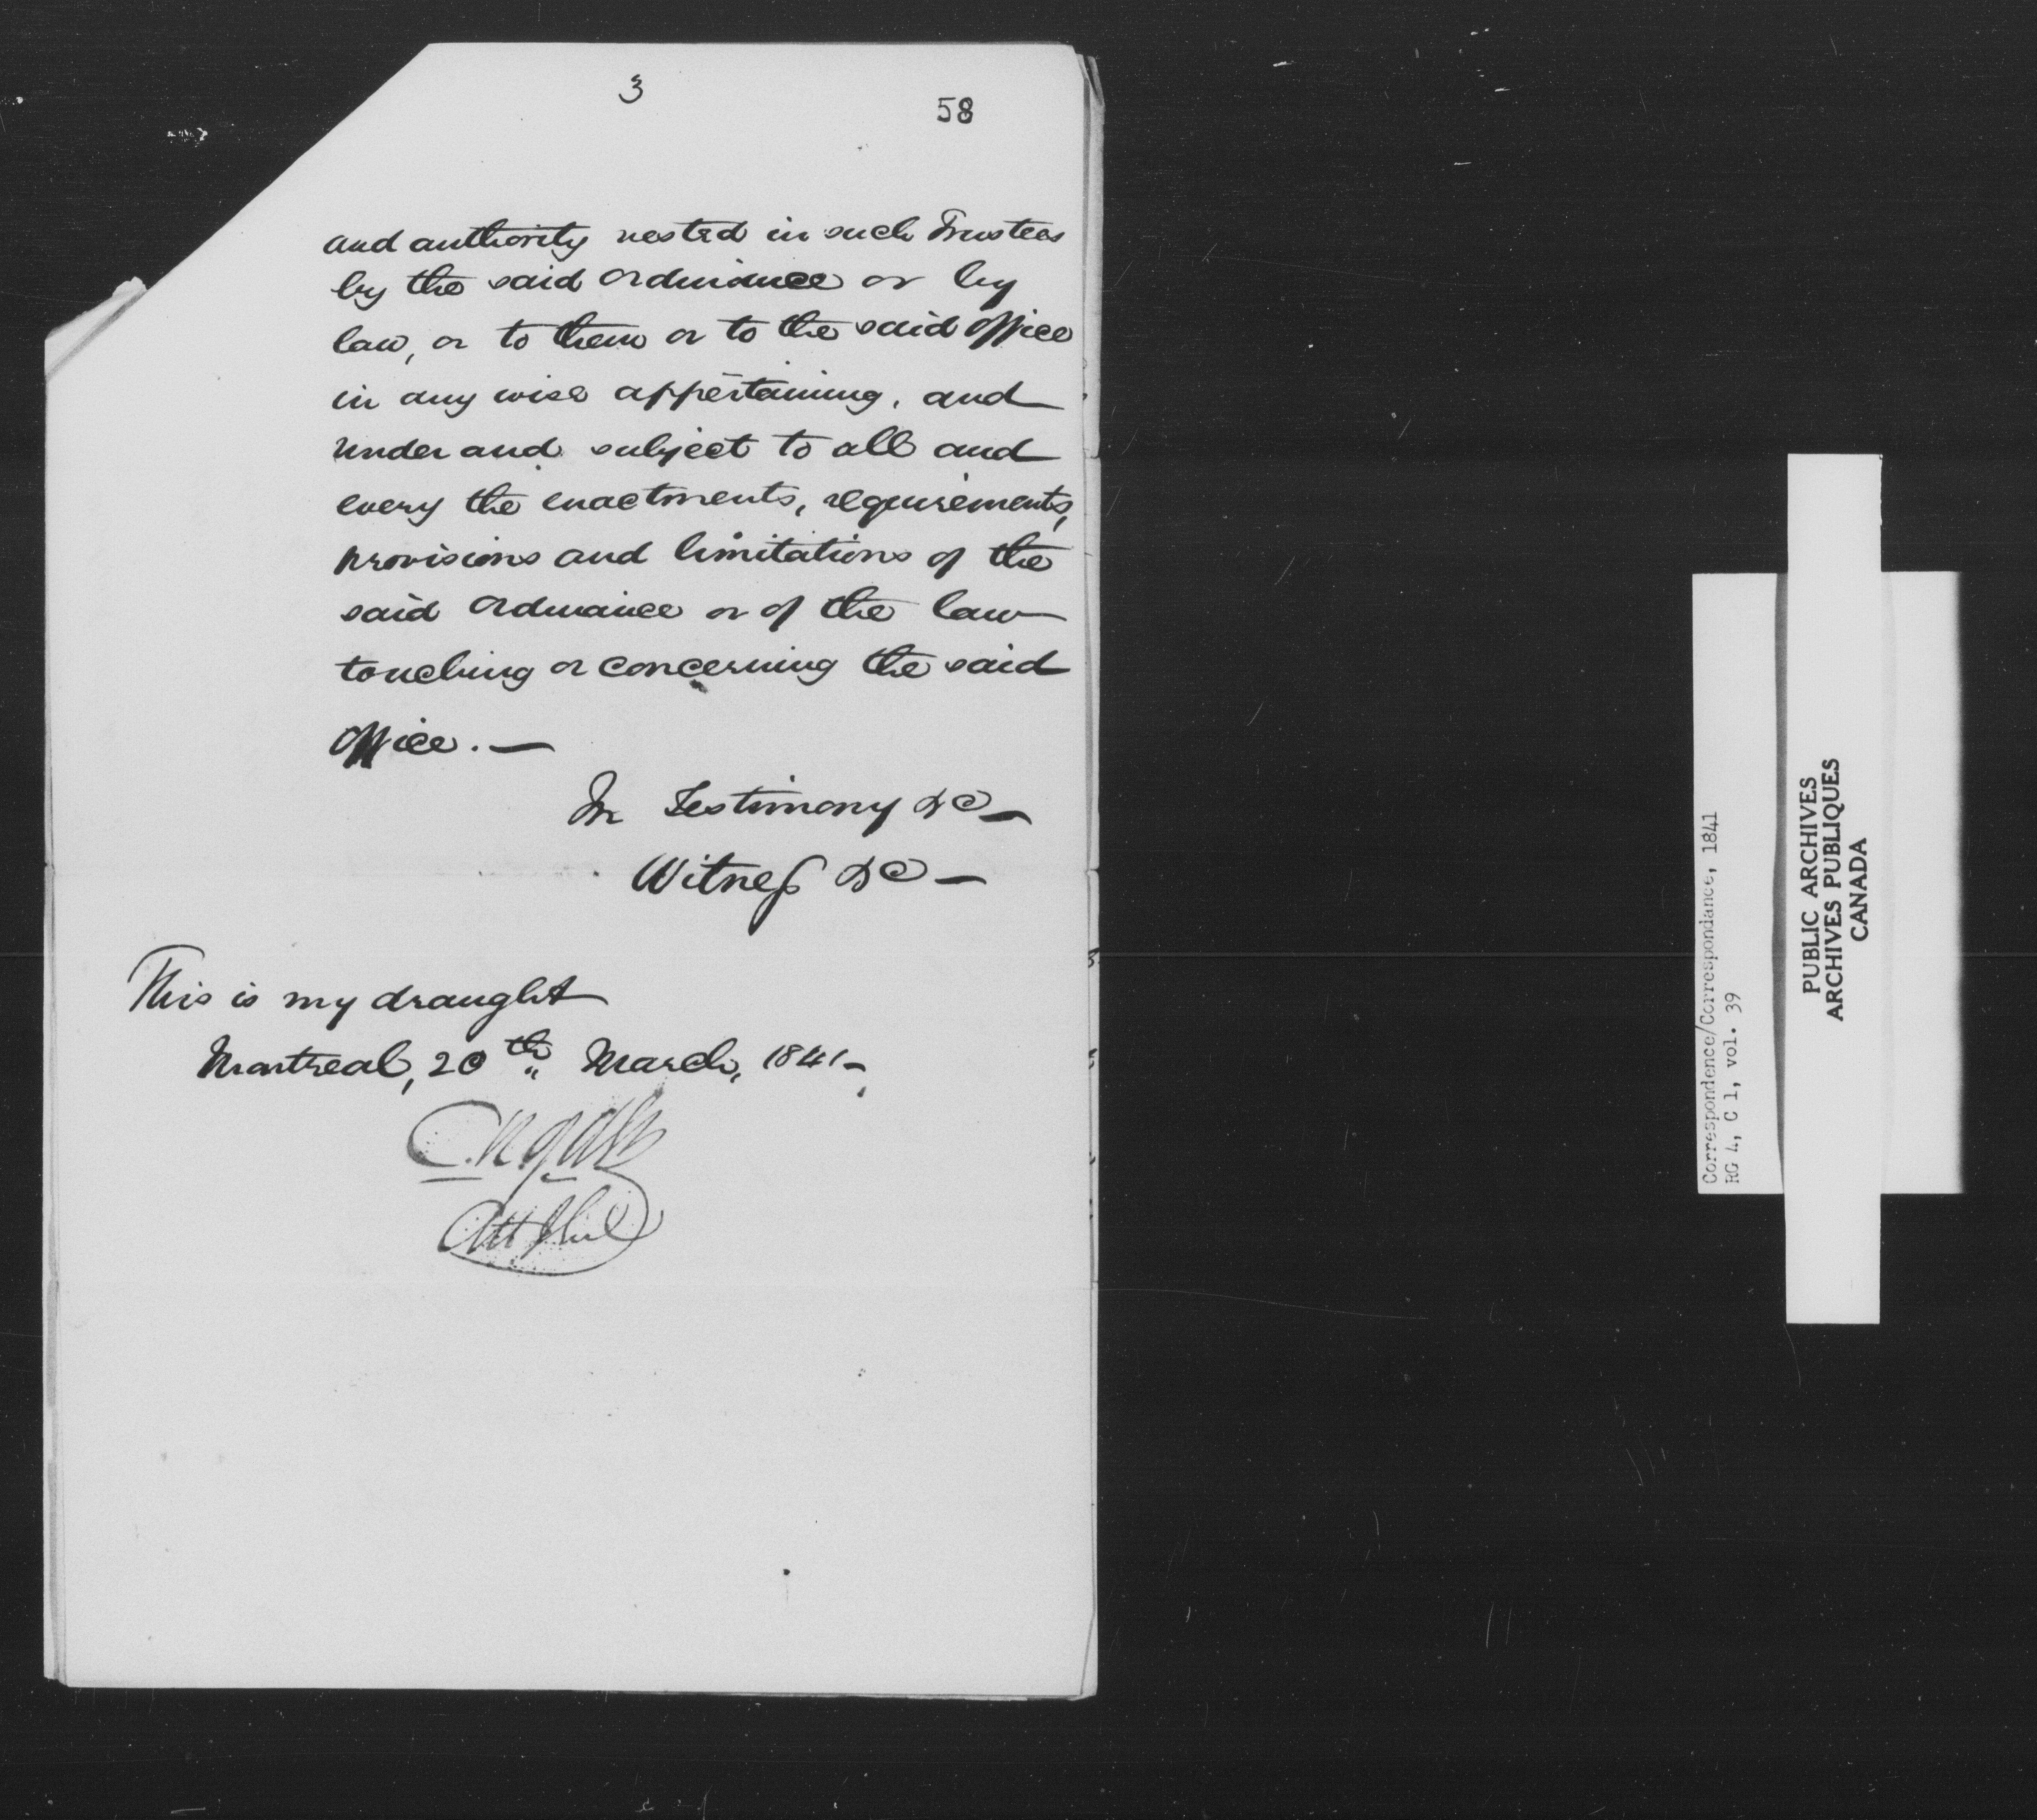 3
58
and authority vested in such Trustees
by the said Ordinance or by
law, or to them or to the said office
in any wise appertaining, and
under and subject to all and
every the enactments, requirements,
provisions and limitations of the
said Ordinance or of the law
touching or concerning the said
office. —
In Testimony &c —
Witness &c —
This is my draught
Montreal, 20th March, 1841 —
C. R. Ogden
Att Genl
Correspondence/Correspondance, 1841
RG 4, C 1, vol. 39
PUBLIC ARCHIVES
ARCHIVES PUBLIQUES
CANADA